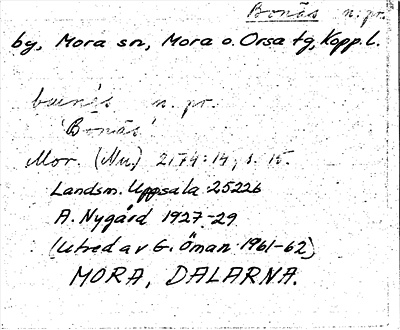 Bonäs n. pr.
by, Mora sn, Mora o. Orsa tg, Kopp. l.
n. pr.
'Bonäs'
Mor. (Nu) 2.74:14, s. 15.
Landsm. Uppsala 25226
A. Nygård 1927-29
(Utred av G. Öman 1961-62)
MORA, DALARNA.